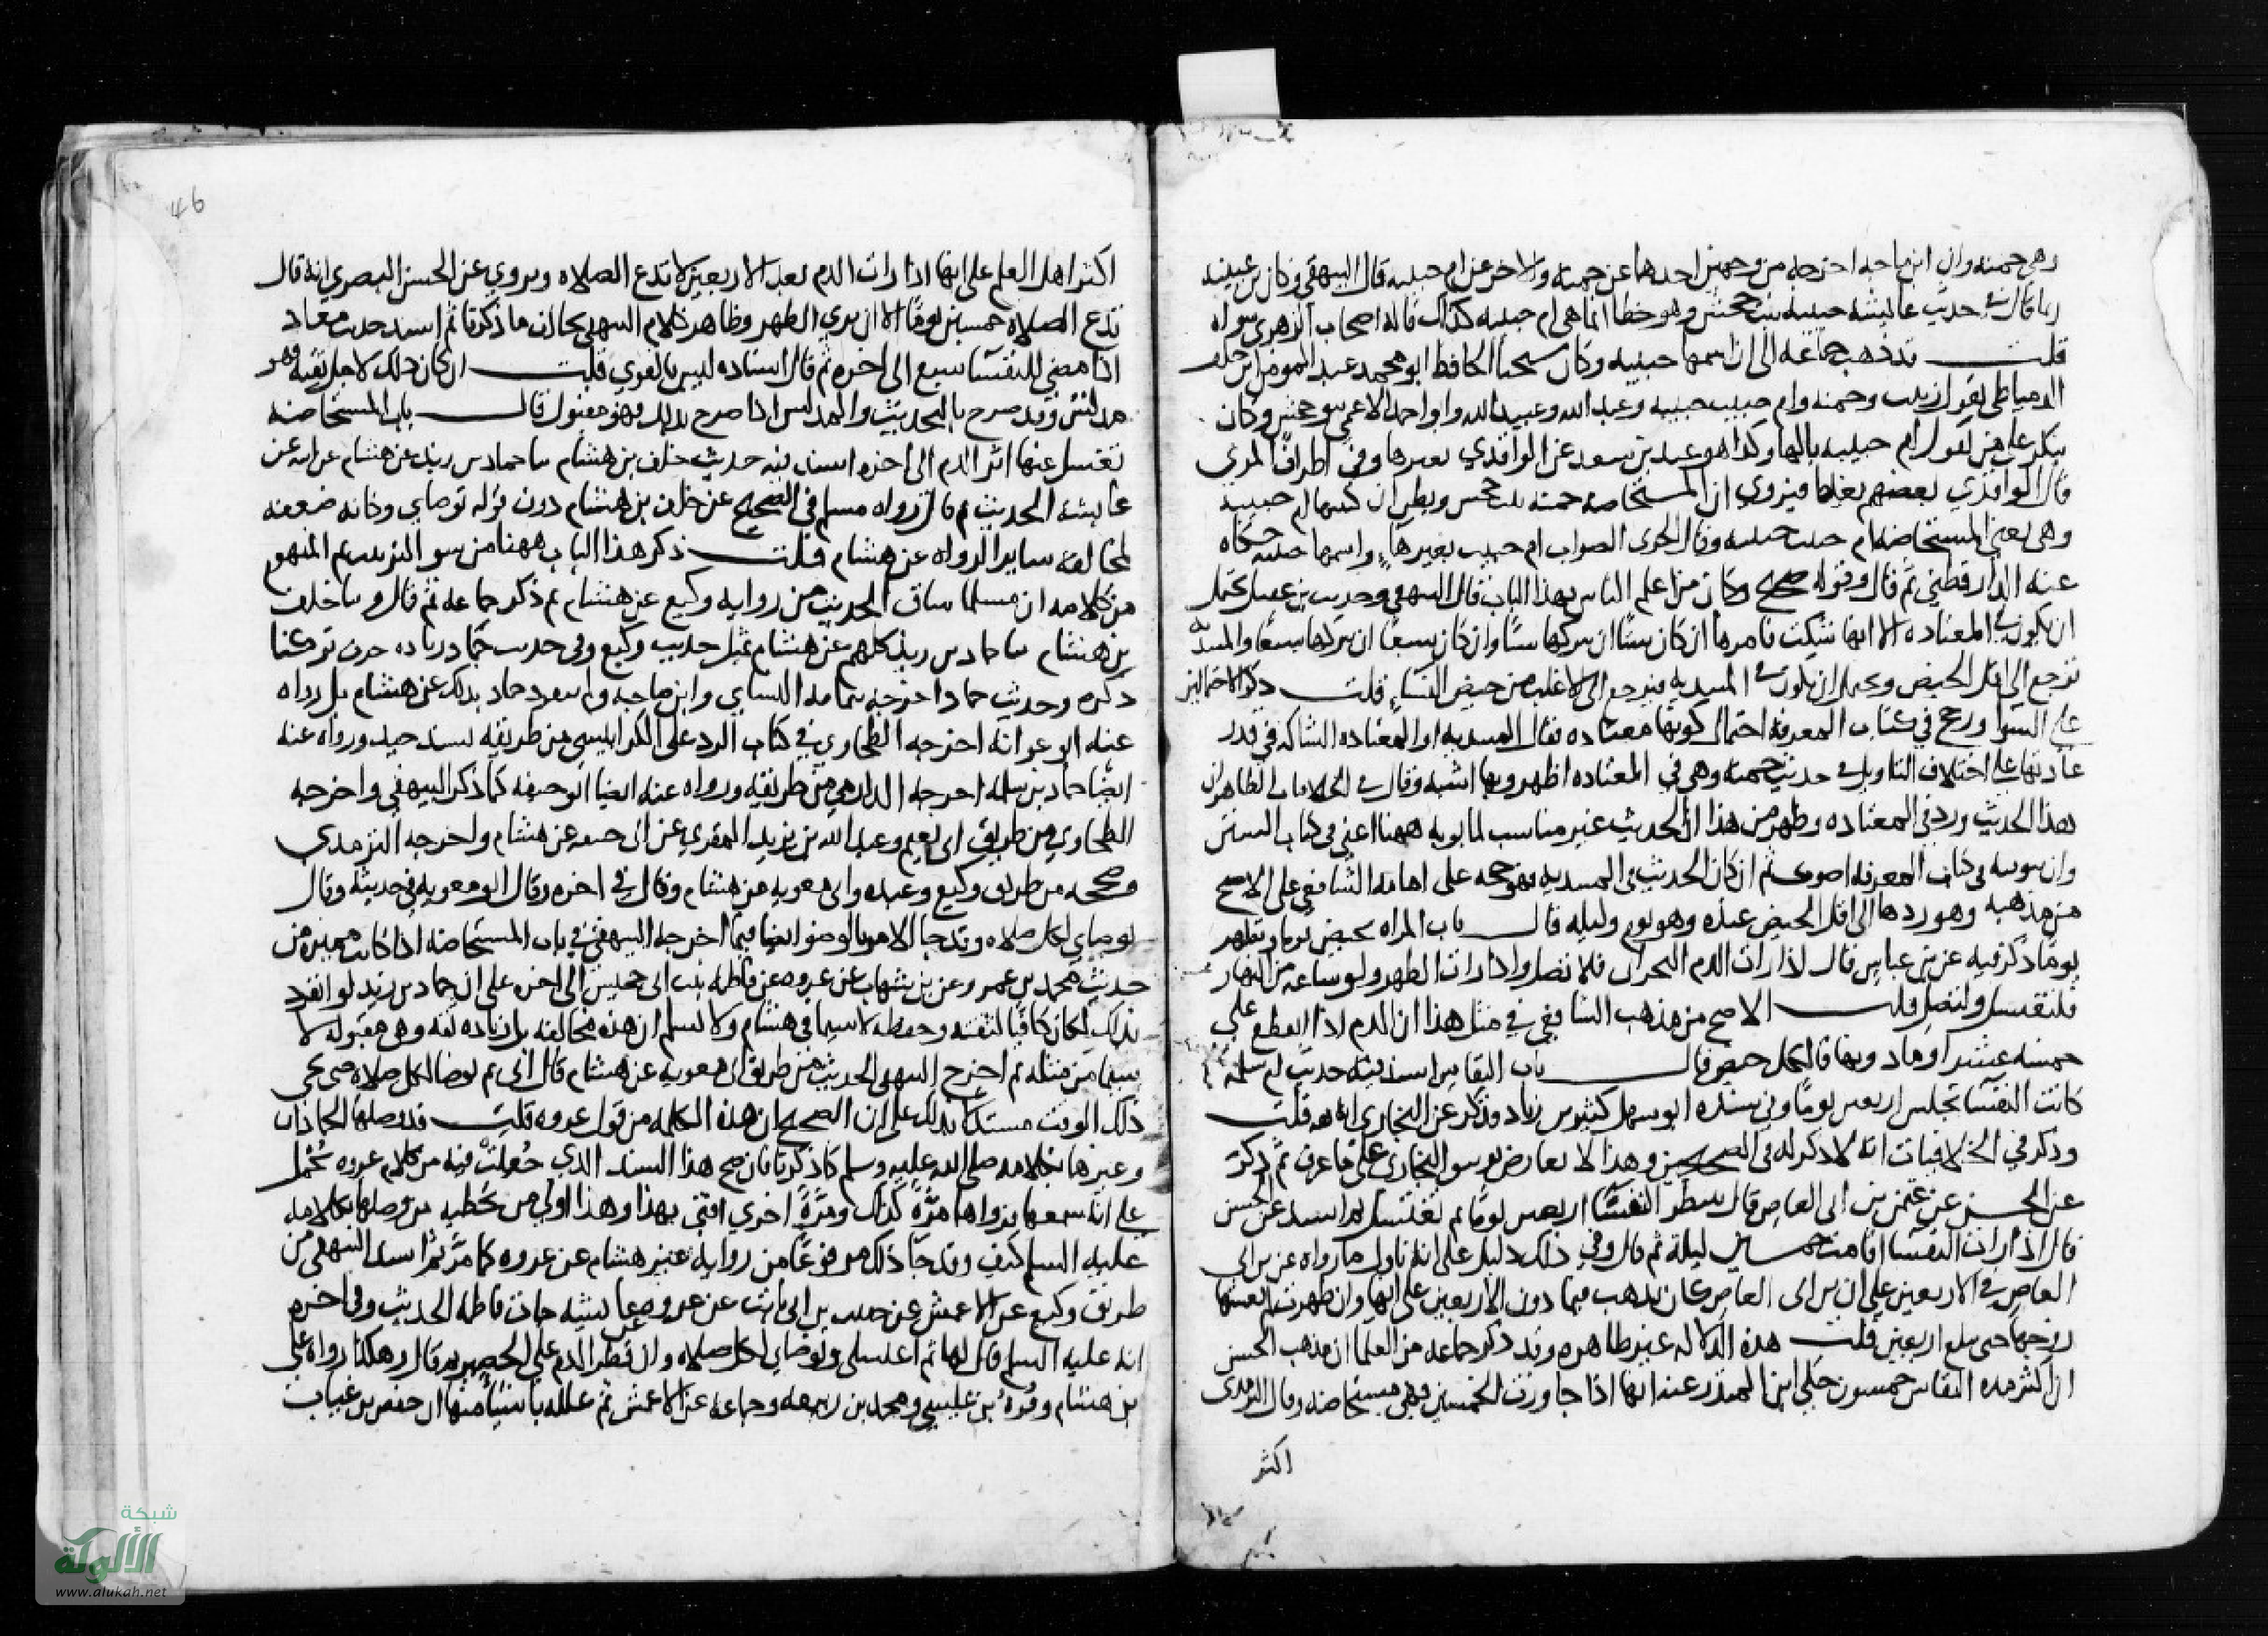 وهي حمنة وان ابن ماجه اخرجه من وجهين احدهما عن حمنة والاخر عن ام حبيبه قال البيهقي وكان بن عيينه
ربما قال في حديث عايشه حبيبه بنت جحش وهو خطا انما هي ام حبيبه كذلك قاله اصحاب الزهري سواه
قلت قد ذهب جماعه الى ان اسمها حبيبه وكان شيخنا الحافظ ابو محمد عبد المومن ابن خلف
الدمياطي يقول زينب وحمنه وام حبيب حبيبه وعبد الله وعبيد الله وابو احمد الاعمى بنو جحش وكان
ينكر على من يقول ام حبيبه بالها وكذا هو عند بن سعد عن الواقدي بغيرها وفي اطراف المزي
قال الواقدي بعضهم يغلط فيروي ان المستحاضه حمنه بنت جحش ويظن ان كنيتها ام حبيبه
وهي يعني المستحاضه ام حبيب حبيبه وقال الحربي الصواب ام حبيب بغير هاء واسمها حبيبه حكاه
عنه الدارقطني ثم قال وقوله صحيح وكان من اعلم الناس بهذا الباب قال البيهقي وحديث بن عقيل يحتمل
ان يكون في المعتاده الا انها شكت فامرها ان كان ستا ان تتركها ستا وان كان سبعا ان تتركها سبعا والمبتديه
ترجع الى اقل الحيض ويحتمل ان يكون في المبتديه فترجع الى الاغلب من حيض النساء قلت ذكر الاحتمالين
على السوا ورجح في كتاب المعرفة احتمال كونها معتاده فقال المبتديه او المعتاده الشاكه في قدر
عادتها على اختلاف التاويل في حديث حمنه وهي في المعتاده اظهر وبها اشبه وقال في الخلافيات الظاهر ان
هذا الحديث ورد في المعتاده وظهر من هذا ان الحديث غير مناسب لما بوبه ههنا اعني في كتاب السنن
وان تبويبه في كتاب المعرفه اصوب ثم ان كان الحديث في المبتديه فهو حجه على امامه الشافعي على الاصح
من مذهبه وهو ردها الى اقل الحيض عنده وهو يوم وليله قال باب المراه تحيض يوما وتطهر
يوما ذكر فيه عن بن عباس قال اذا رات الدم البحراني فلا تصل واذا رات الطهر ولو ساعه من النهار
فلتغتسل ولتصل قلت الاصح من مذهب الشافعي في مثل هذا ان الدم اذا انقطع على
خمسه عشر او ما دونها فالكل حيض قال باب النفاس اسند فيه حديث ام سلمه
كانت النفسا تجلس اربعين يوما وفي سنده ابو سهل كثير بن زياد وذكر عن البخاري انه ثقه قلت
وذكر في الخلافيات انه لا ذكر له في الصحيحين وهذا لا يعارض توثيق البخاري على ما عرف ثم ذكر
عن الحسن عن عثمن بن ابي العاص قال تنتظر النفسا اربعين يوما ثم تغتسل ثم اسند عن الحسن
قال اذا رات النفسا اقامت خمسين ليلة ثم قال وفي ذلك دليل على انه تاول ما رواه عن بن ابي
العاص في الاربعين على ان بن ابي العاص كان يذهب فيما دون الاربعين على انها وان طهرت لم يغشها
زوجها حتى تبلغ اربعين قلت هذه الدلاله غير ظاهره وقد ذكر جماعه من العلما ان مذهب الحسن
ان اكثر مده النفاس خمسون حكى ابن المنذر عنه انها اذا جاوزت الخمسين فهي مستحاضه وقال الترمذي
اكثر
46
اكثر اهل العلم على انها اذا رات الدم بعد الاربعين لا تدع الصلاه ويروي عن الحسن البصري انه قال
تدع الصلاه خمسين يوما الا ان تري الطهر وظاهر كلام البيهقي يخالف ما ذكرنا ثم اسند حديث معاذ
اذا مضي للنفسا سبع الى اخره ثم قال اسناده ليس بالقوي قلت ان كان ذلك لاجل بقيه فهو
مدلس وقد صرح بالتحديث والمدلس اذا صرح بذلك فهو مقبول قال باب المستحاضه
تغسل عنها اثر الدم الى اخره اسند فيه حديث خلف بن هشام نا حماد بن زيد عن هشام عن ابيه عن
عايشه الحديث ثم قال رواه مسلم في الصحيح عن خلف بن هشام دون قوله توضاي وكانه ضعفه
لمخالفه ساير الرواه عن هشام قلت ذكر هذا الباب ههنا من سو الترتيب ثم المفهوم
من كلامه ان مسلما ساق الحديث من روايه وكيع عن هشام ثم ذكر جماعه ثم قال ونا خلف
بن هشام نا حماد بن زيد كلهم عن هشام بمثل حديث وكيع وفي حديث حماد زياده حرف تركنا
ذكره وحديث حماد اخرجه بتمامه النساي وابن ماجه ولم ينفرد حماد بذلك عن هشام بل رواه
عنه ابو عوانه اخرجه الطحاوي في كتاب الرد على الكرابيسي من طريقه بسند جيد ورواه عنه
ايضا حماد بن سلمه اخرجه الدارمي من طريقه ورواه عنه ايضا ابو حنيفه كما ذكر البيهقي واخرجه
الطحاوي من طريق ابي نعيم وعبد الله بن يزيد المقري عن ابي حنيفه عن هشام واخرجه الترمذي
وصححه من طريق وكيع وعبده وابي معويه عن هشام وقال في اخره وقال ابو معويه في حديثه وقال
توضاي لكل صلاه وقد جا الامر بالوضو ايضا فيما اخرجه البيهقي في باب المستحاضه اذا كانت مميزه من
حديث محمد بن عمرو عن بن شهاب عن عروه عن فاطمه بنت ابي حبيش الى اخره على ان حماد بن زيد لو انفرد
بذلك لكان كافيا لثقته وحفظه لاسيما في هشام ولا نسلم ان هذه مخالفه بل زياده ثقه وهي مقبوله لا
سيما من مثله ثم اخرج البيهقي الحديث من طريق ابي معويه عن هشام قال ابي ثم توضا لكل صلاه حتى يجي
ذلك الوقت مستدلا بذلك على ان الصحيح ان هذه الكلمه من قول عروه قلت قد وصلها الحمادان
وغيرهما بكلامه صلى الله عليه وسلم كما ذكرنا فان صح هذا السند الذي جُعِلَتْ فيه من كلام عروه تُحمل
على انه سمعها فرواها مَرَّةً كذلك ومَرَّةً اخري افتى بهذا وهذا اولي من تخطيه من وصلها بكلامه
عليه السلم كيف وقد جا ذلك مرفوعًا من روايه غير هشام عن عروه كما مَرَّ ثم اسند البيهقي من
طريق وكيع عن الاعمش عن حبيب بن ابي ثابت عن عروه عن عايشه جات فاطمه الحديث وفي اخره
انه عليه السلم قال لها ثم اغتسلي وتوضاي لكل صلاه وان قطر الدم على الحصير ثم قال وهكذا رواه علي
بن هشام وقُرة بن عيسي ومحمد بن ربيعه وجماعه عن الاعمش ثم علله باشيا منها ان حفص بن غياث
شبكة
الألوكة
www.alukah.net